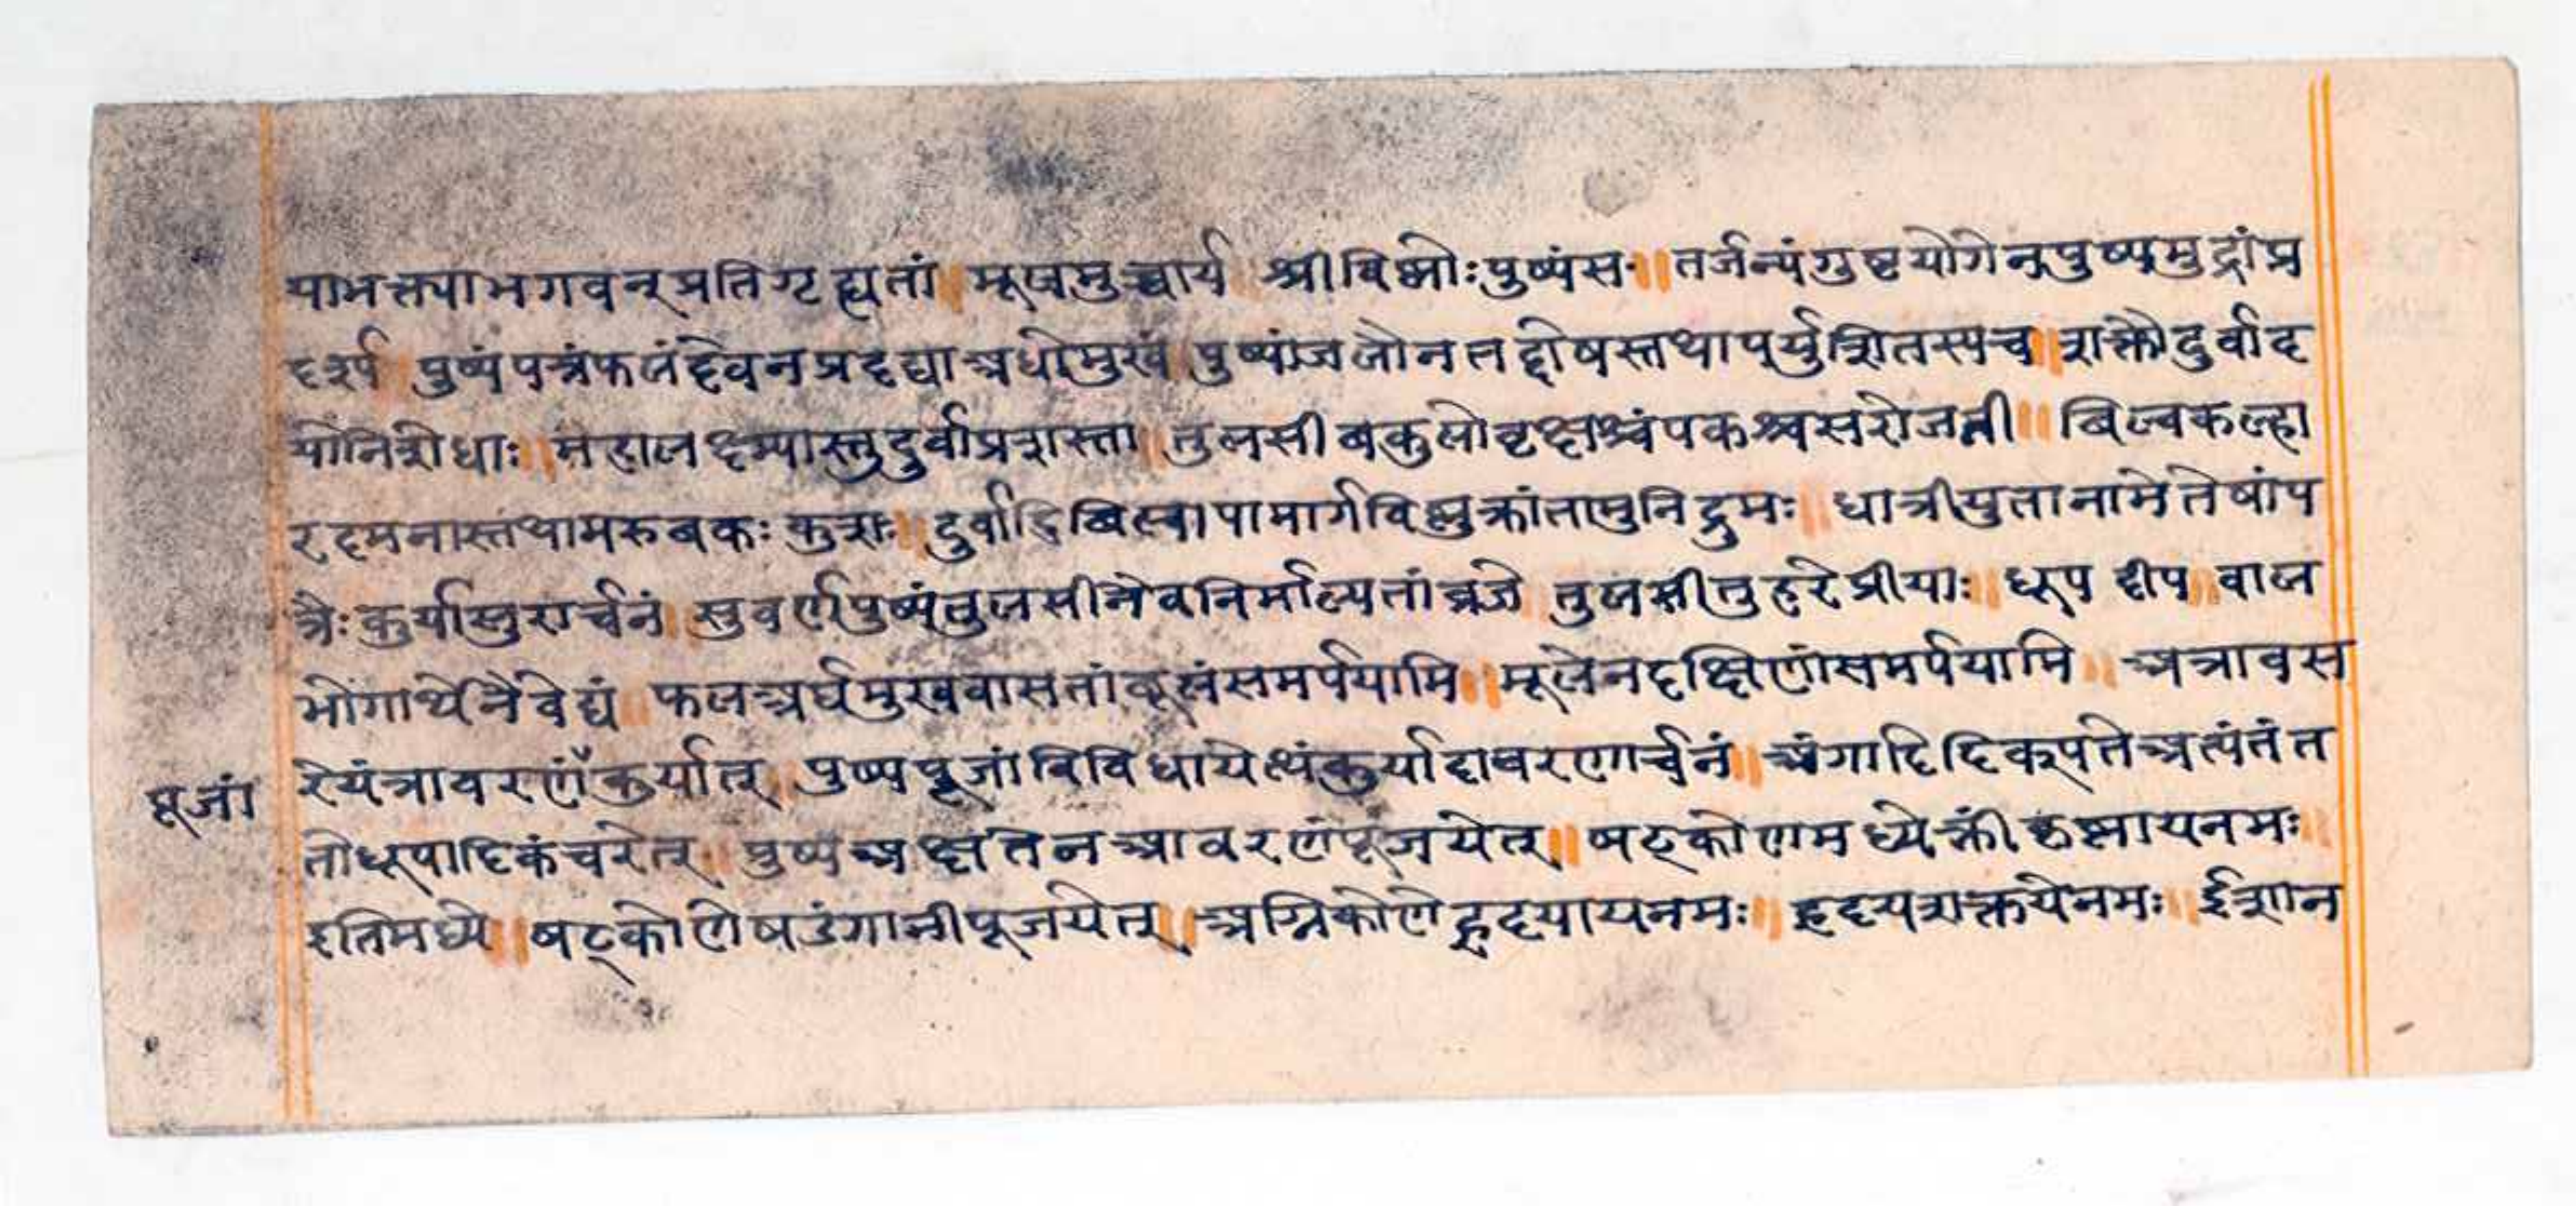 याभक्त्याभगवन्प्रतिगृह्यतां ॥ मूलमुच्चार्य श्रीविष्णोःपुष्पंस॰ ॥ तर्जन्यंगुष्टयोगेनपुष्पमुद्रांप्र
दर्श्य ॥ पुष्पंपत्रंफलंदेवनप्रदद्याअधोमुखं पुष्पांजलौनतद्दोषस्तथापर्युशितस्यच ॥ शक्तौदुर्वाद
योनिशेधाः ॥ महालक्ष्म्यास्तुदुर्वाप्रशस्ता ॥ तुलसीबकुलोवृक्षश्चंपकश्चसरोजनी ॥ बिल्वकल्हा
रदमनास्तथामरुबकः कुशः ॥ दुर्वादिबिल्वापामार्गविष्णुक्रांतामुनिद्रुमः ॥ धात्रीयुतानामेतेषांप
त्रैःकुर्यासुरार्चनं ॥ सुवर्णपुष्पंतुलसीनेवनिर्माल्यतांव्रजे तुलसीतुहरेप्रीयाः ॥ धूप दीप ॥ वाल
भोगार्थेनैवेद्यं ॥ फलअर्घमुखवासतांबूलंसमर्पयामि ॥ मूलेनदक्षिणांसमर्पयामि ॥ अत्रावस
रेयंत्रावरणँकुर्यात् ॥ पुष्पपूजांविविधायेत्थंकुर्यादावरणार्चनं ॥ अंगादिदिक्पतेअत्यंतंत
पूजां
तोधूपादिकंचरेत् ॥ पुष्पअक्षतेनआवरणंपूजयेत् ॥ षट्कोणमध्येक्लीं कृष्णायनमः ॥
इतिमध्ये ॥ षट्कोणेषडंगानीपूजयेत् ॥ अग्निकोणेहृदयायनमः ॥ हृदयशक्तयेनमः ॥ ईशान